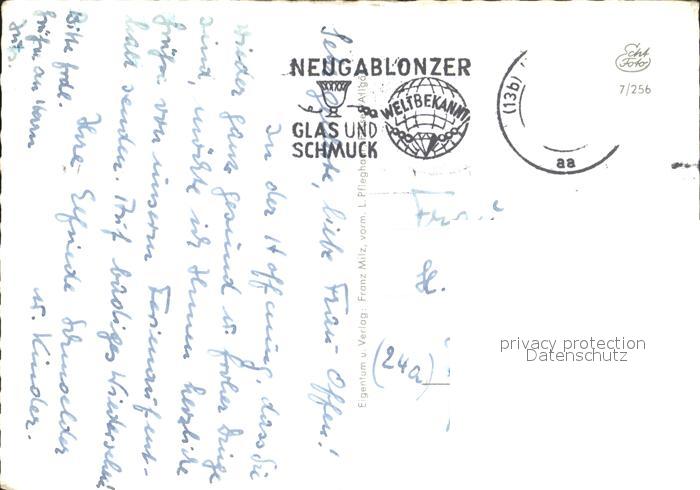 NEUGABLONZER
WELTBEKANNT
GLAS UND
SCHMUCK
(13b)
aa
Echt
Foto
7/256
Eigentum u. Verlag: Franz Milz, vorm. L. Pfleghaar
Sehr geehrte, liebe Frau Offen!
In der Hoffnung, dass Sie
wieder ganz gesund u. froher Dinge
sind, möchte ich Ihnen herzliche
Grüße von unserm Ferienaufent-
halt senden. Auf baldiges Wiedersehen!
Ihre Elfriede Schmoelder
u. Kinder.
Bitte frdl.
Grüße an Herrn
Frau
H.
(24a)
privacy protection
Datenschutz